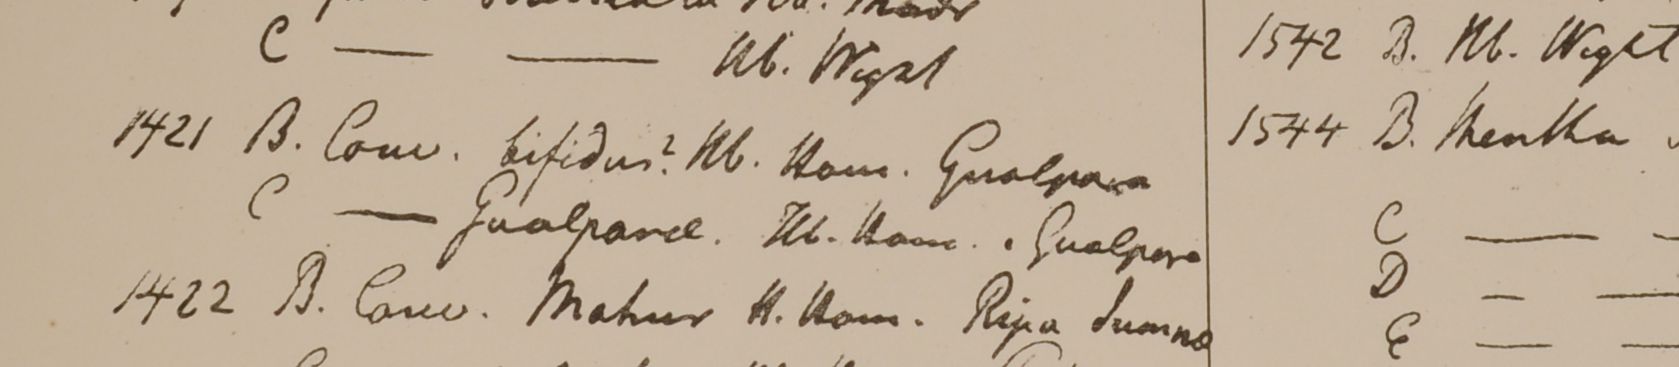 C — — Hb. Wight
1421 B. Conv. bifidus? Hb. Ham. Gualpara
C — Gualparae. Hb. Ham. Gualpara
1422 B. Conv. H. Ham. Ripa
1542 B. Hb. Wight
1544 B. Mentha
C — —
D — —
E — —